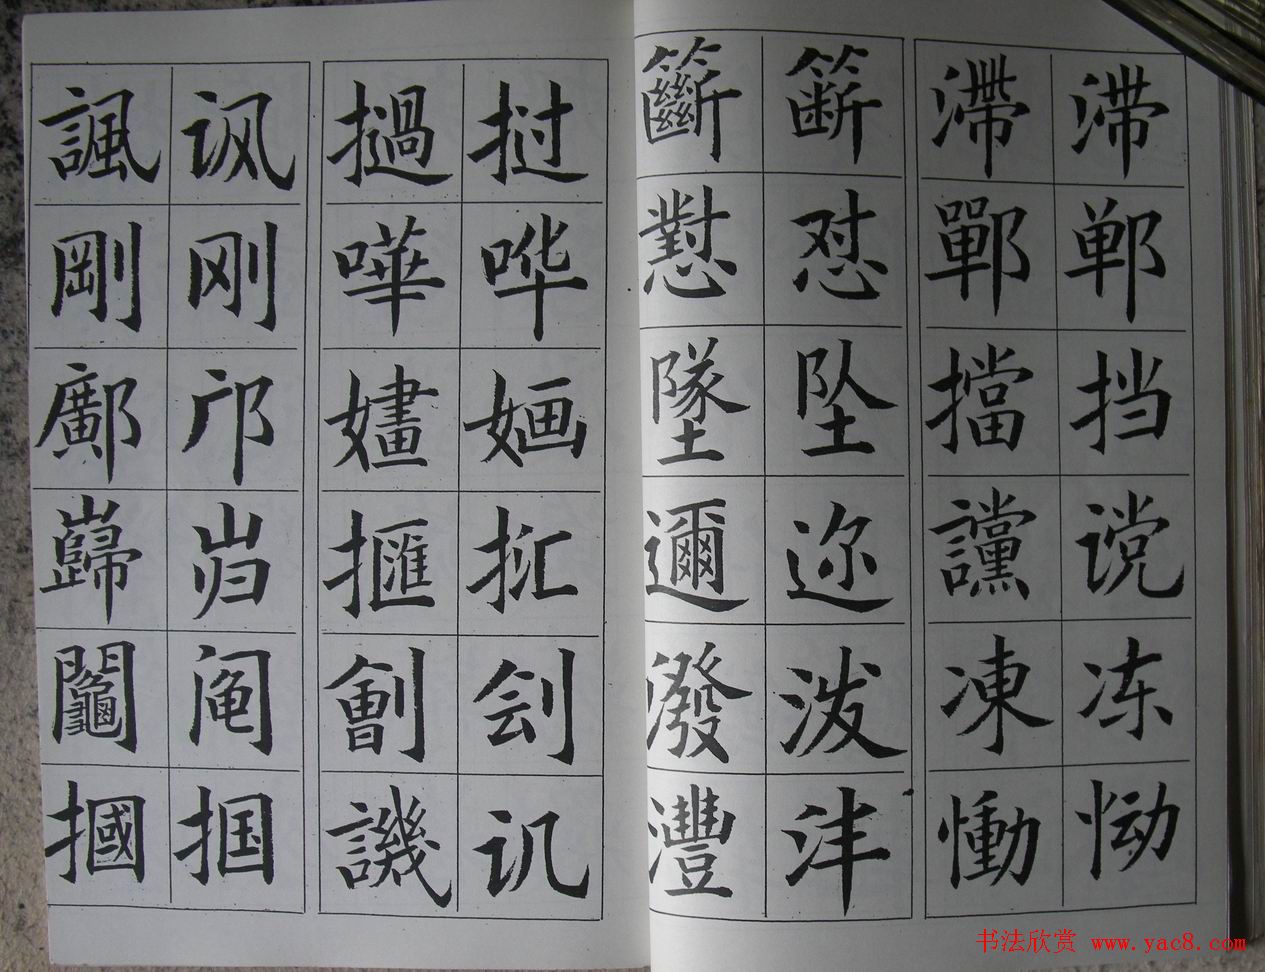 諷 讽 撾 挝
剛 刚 嘩 哗
鄺 邝 嫿 婳
巋 岿
鬮 阄 劊 刽
摑 掴 譏 讥
籪 簖 滯 滞
懟 怼 鄲 郸
墜 坠 擋 挡
邇 迩 讜 谠
潑 泼 凍 冻
灃 沣 慟 恸
书法欣赏 www.yac8.com